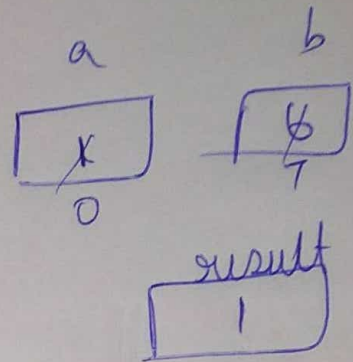 a b
0 7
result
1